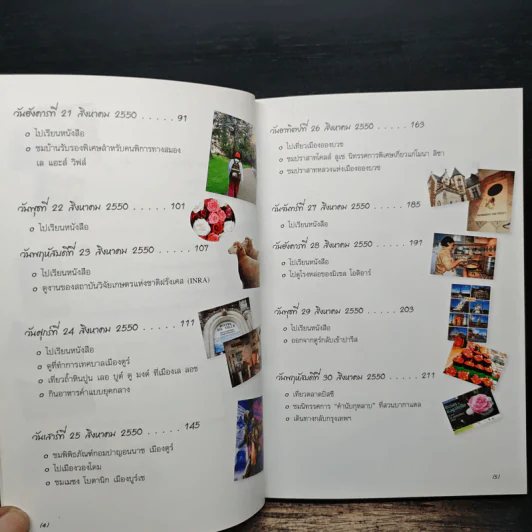 วันอังคารที่ 21 สิงหาคม 2550 . . . . . 91
ไปเรียนหนังสือ
ชมบ้านรับรองพิเศษสำหรับคนพิการทางสมอง
เล แอะส์ วิฟส์
วันพุธที่ 22 สิงหาคม 2550 . . . . . 101
ไปเรียนหนังสือ
วันพฤหัสบดีที่ 23 สิงหาคม 2550 . . . . . 107
ไปเรียนหนังสือ
ดูงานของสถาบันวิจัยเกษตรแห่งชาติฝรั่งเศส (INRA)
วันศุกร์ที่ 24 สิงหาคม 2550 . . . . . 111
ไปเรียนหนังสือ
ดูที่ทำการเทศบาลเมืองตูร์
เที่ยวถ้ำหินปูน เลอ บูต์ ดู มงด์ ที่เมืองเล ลอช
กินอาหารค่ำแบบยุคกลาง
วันเสาร์ที่ 25 สิงหาคม 2550 . . . . . 145
ชมพิพิธภัณฑ์กอมปาญอนนาช เมืองตูร์
ไปเมืองวองโดม
ชมเมซง โบตานิก เมืองบูร์เซ
[4]
วันอาทิตย์ที่ 26 สิงหาคม 2550 . . . . . 163
ไปเที่ยวเมืองอองบวช
ชมปราสาทโคลส์ ลูเซ นิทรรศการพิเศษเกี่ยวแก่โมนา ลิซา
ชมปราสาทหลวงแห่งเมืองอองบวช
วันจันทร์ที่ 27 สิงหาคม 2550 . . . . . 185
ไปเรียนหนังสือ
วันอังคารที่ 28 สิงหาคม 2550 . . . . . 191
ไปเรียนหนังสือ
ไปดูโรงหล่อของมิเชล โอดิอาร์
วันพุธที่ 29 สิงหาคม 2550 . . . . . 203
ไปเรียนหนังสือ
ออกจากตูร์กลับเข้าปารีส
วันพฤหัสบดีที่ 30 สิงหาคม 2550 . . . . . 211
เที่ยวตลาดบัสซี
ชมนิทรรศการ "ตำนับกุหลาบ" ที่สวนบากาแตล
เดินทางกลับกรุงเทพฯ
[5]